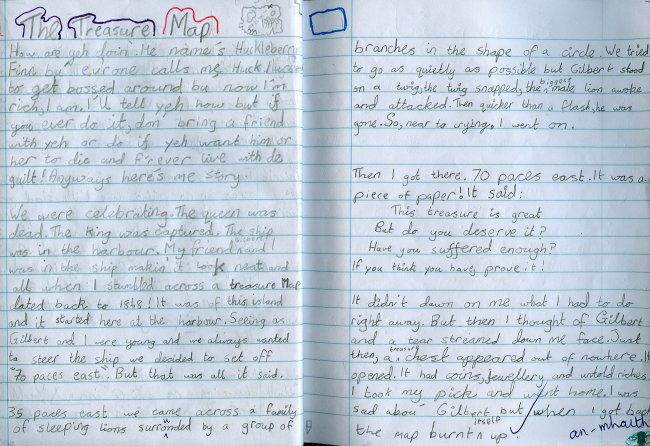 The Treasure Map
How are yeh doin'. He name's Huckleberry
Finn by everone calls me Huck. I used
to get bossed around by now I'm
rich, I am. I'll tell yeh how but if
you ever do it, don' bring a friend
with yeh or do if yeh want him or
her to die and f'rever live with de
guilt! Anyways here's me story.
We were celebrating. The queen was
dead. The king was captured. The ship
was in the harbour. My friend Gilbert and I
was in the ship makin' it look neat and
all when I stumbled across a treasure Map
dated back to 1848! It was of this island
and it started here at the harbour. Seeing as
Gilbert and I were young and we always wanted
to steer the ship we decided to set off
"70 paces east". But that was all it said.
35 paces east we came across a family
of sleeping lions surronded by a group of
branches in the shape of a circle. We tried
to go as quietly as possible but Gilbert stood
on a twig, the twig snapped, the biggest male lion awoke
and attacked. Then quicker than a flash, he was
gone. So, near to crying, I went on.
Then I got there. 70 paces east. It was a
piece of paper! It said:
This treasure is great
But do you deserve it?
Have you suffered enough?
If you think you have, prove it!
It didn't dawn on me what I had to do
right away. But then I thought of Gilbert
and a tear streamed down me face. Just
then, a treasure chest appeared out of nowhere. It
opened. It had coins, jewellery and untold riches.
I took my pick and went home. I was
sad abou' Gilbert but when I got back
the map burnt itself up
an-mhaith